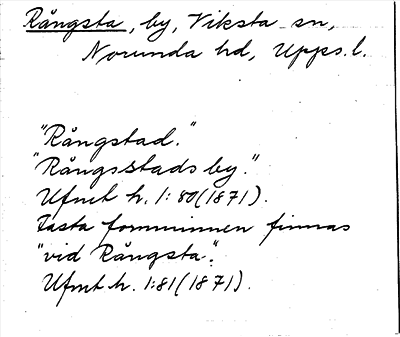 Rångsta, by, Viksta sn,
Norunda hd, Upps. l.
"Rångstad."
"Rångsstads by."
Ufmt h. 1:80 (1871).
Fasta fornminnen finnas
"vid Rångsta".
Ufmt h. 1:81 (1871).